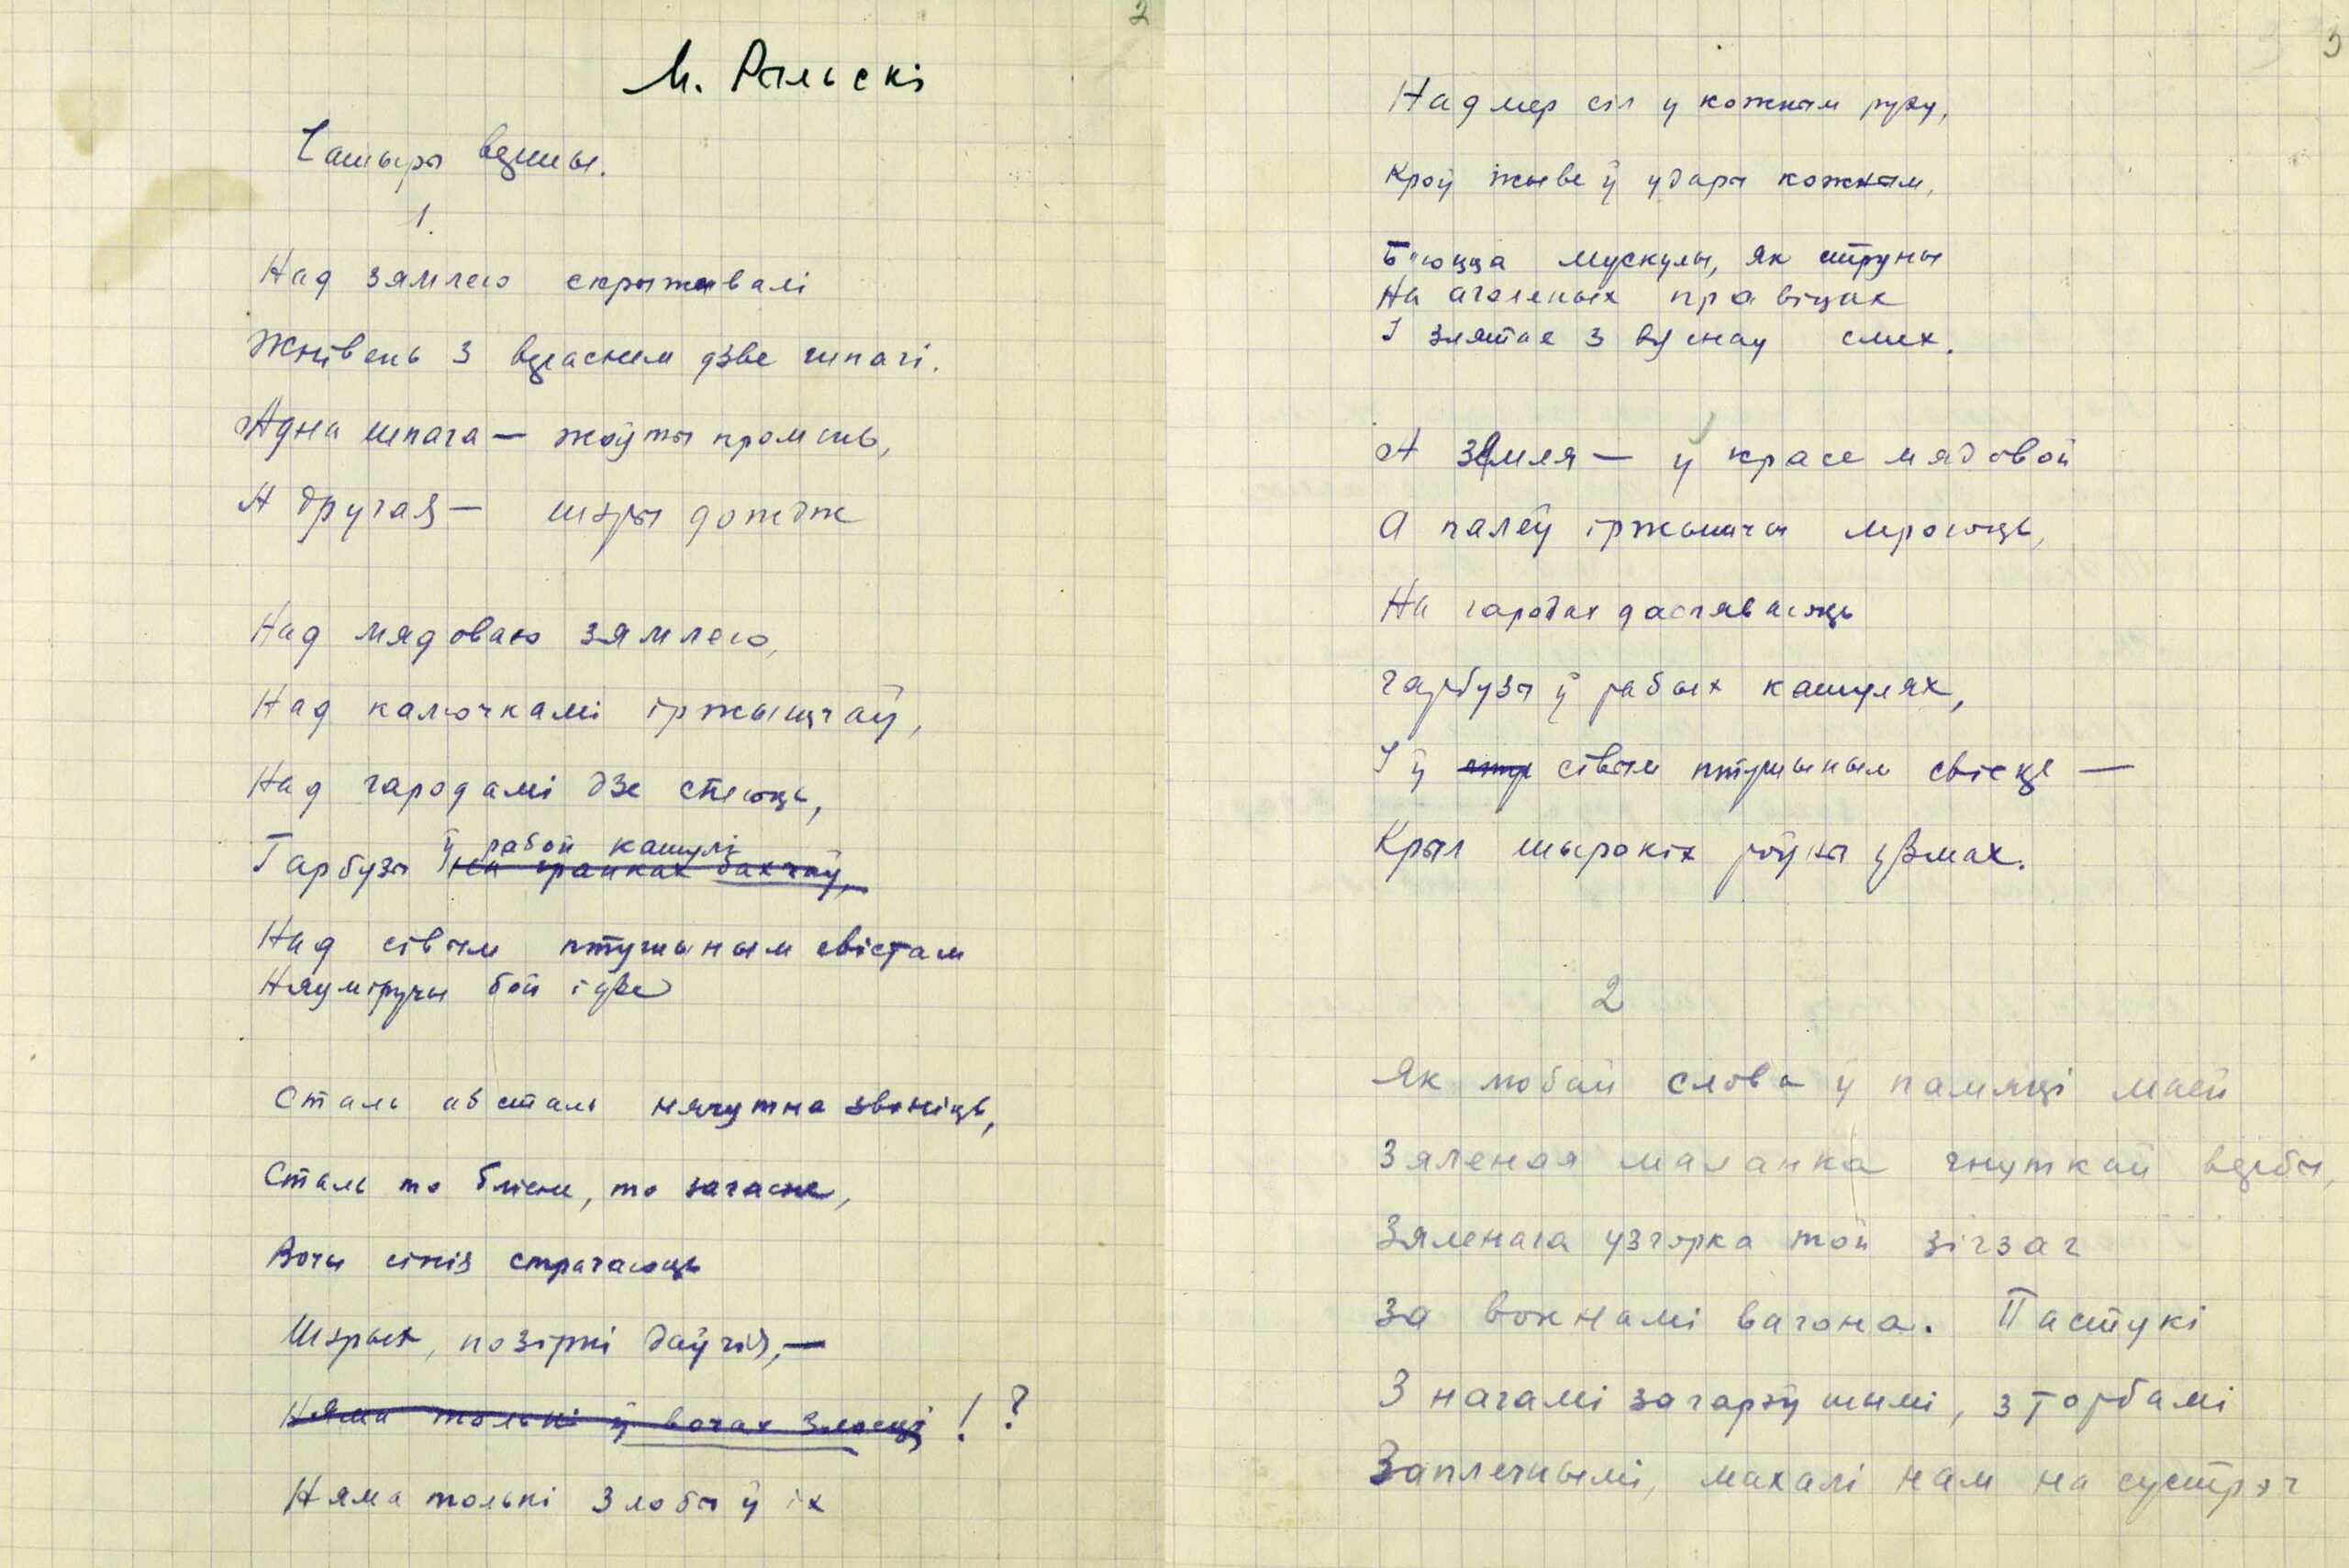 2
М. Рыльскі
Чатыры вершы.
1.
Над зямлею скрыжавалі
Жнівень з верасьнем дзве шпагі.
Адна шпага — жоўты прамень,
А другая — шэры дождж
Над мядоваю зямлею,
Над калючкамі іржышчаў,
Над гародамі дзе спеюць,
ў рабой кашулі
Гарбузы на градках бахчаў,
Над сівым птушыным свістам
Няўміручы бой ідзе
Сталь аб сталь нячутна звоніць,
Сталь то блісне, то загасне,
Вочы сініх страчаюць
Шэрых, позіркі даўгія, —
Няма толькі ў вочах злосці ! ?
Няма толькі злобы ў іх
3
Надмер сіл у кожным руху,
Кроў жыве ў удары кожным,
Б'юцца мускулы, як струны
На аголеных правіцах
І злятае з вуснаў смех.
А земля — ў красе мядовой
А палёў іржышчы мрояць,
На гародах даспяваюць
Гарбузы ў рабых кашулях,
І ў сівым птушыным свісце —
Крыл шырокіх роўны ўзмах.
2
Як любай слова ў памяці маей
Зяленая маланка гнуткай вербы,
Зяленага узгорка той зігзаг
За вокнамі вагона. Пастухі
З нагамі загарэўшымі, з торбамі
Заплечнымі, махалі нам на сустрэч